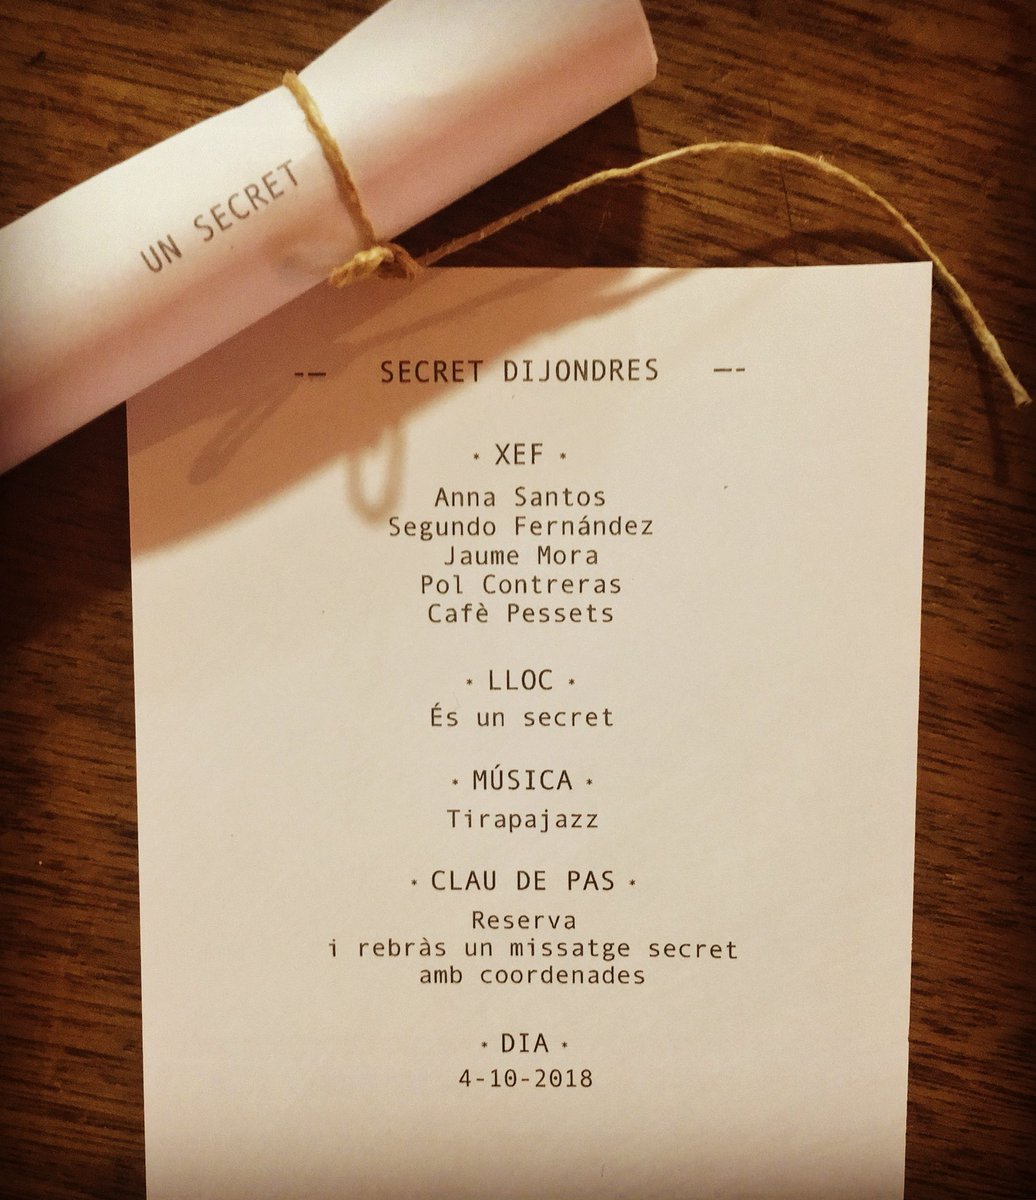 UN SECRET
-— SECRET DIJONDRES —-
* XEF *
Anna Santos
Segundo Fernández
Jaume Mora
Pol Contreras
Cafè Pessets
* LLOC *
És un secret
* MÚSICA *
Tirapajazz
* CLAU DE PAS *
Reserva
i rebràs un missatge secret
amb coordenades
* DIA *
4-10-2018